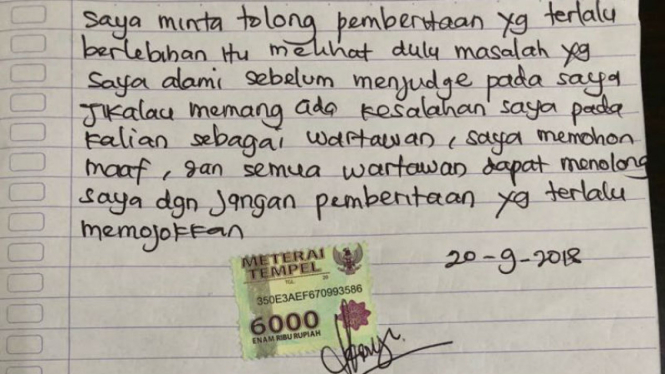 saya minta tolong pemberitaan yg terlalu
berlebihan itu melihat dulu masalah yg
saya alami sebelum menjudge pada saya
Jikalau memang ada kesalahan saya pada
kalian sebagai wartawan, saya memohon
maaf, dan semua wartawan dapat menolong
saya dgn jangan pemberitaan yg terlalu
memojokkan
20-9-2018
METERAI
TEMPEL
TGL. 20
350E3AEF670993586
6000
ENAM RIBU RUPIAH